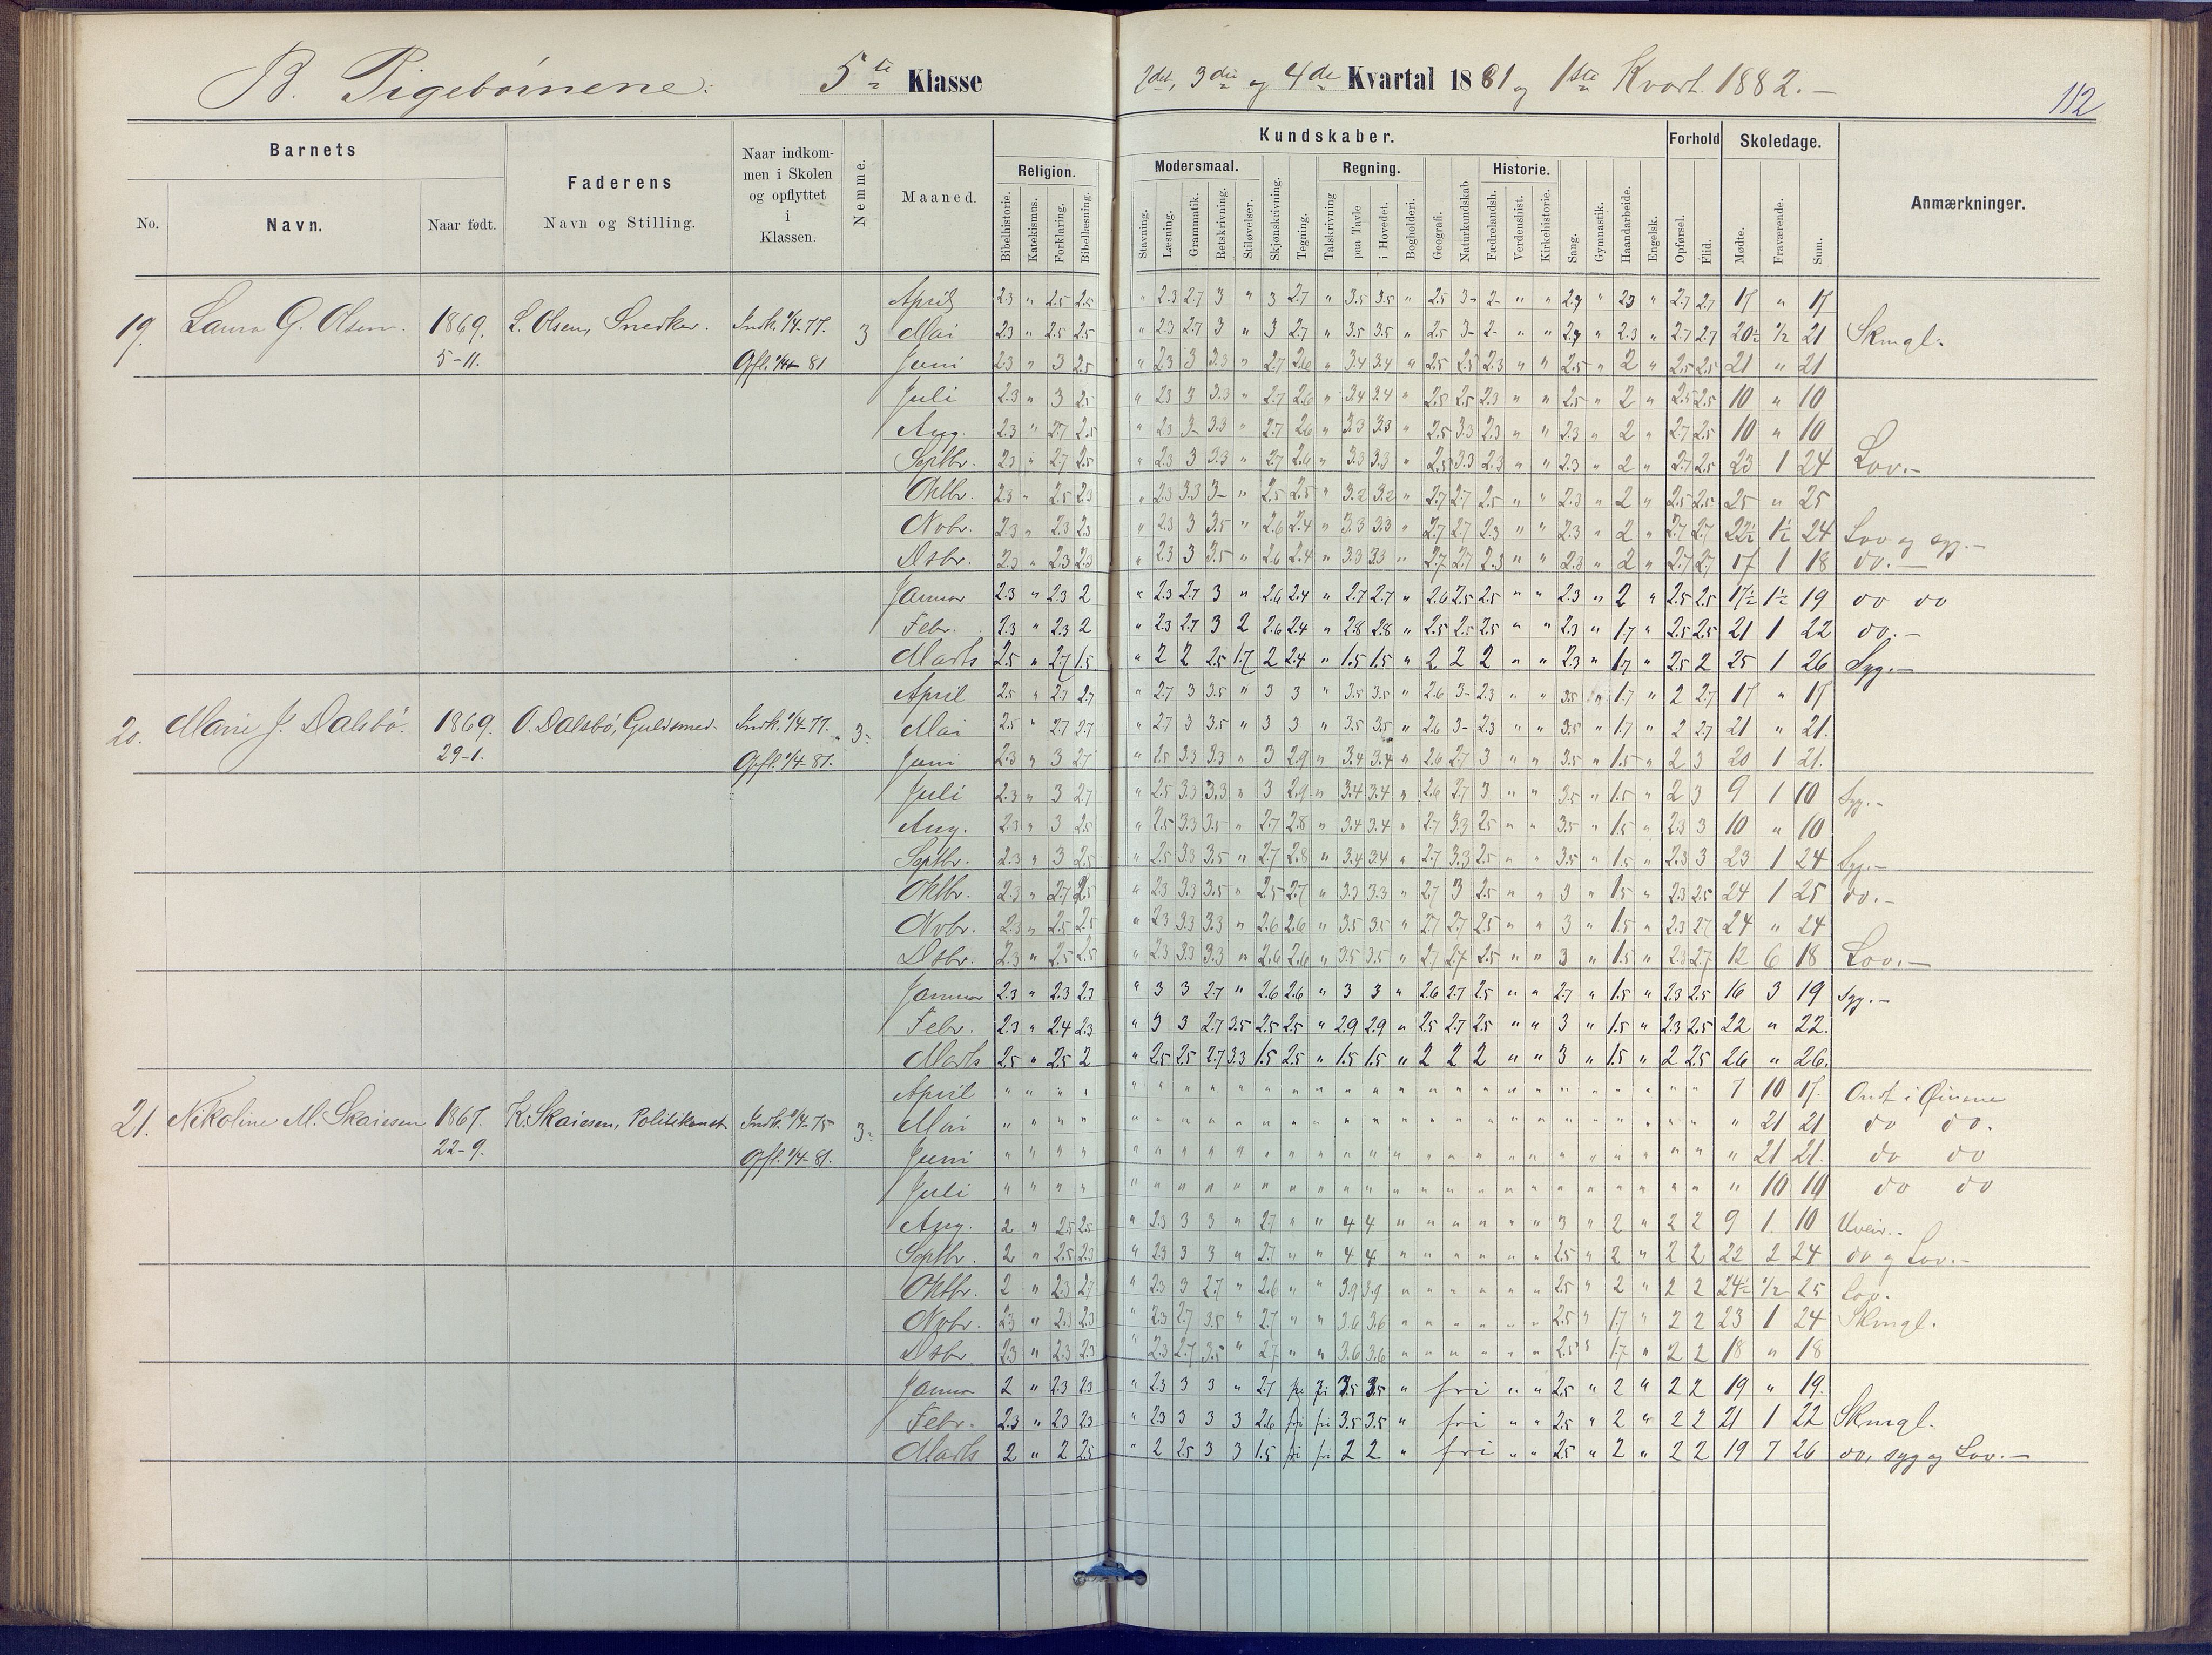 B. Pigebørnene. 5te Klasse
2det, 3die og 4de Kvartal 1881 og 1ste Kvart. 1882.
112
Barnets
No. Navn. Naar født.
Faderens
Navn og Stilling.
Naar indkom-
men i Skolen
og opflyttet
i
Klassen.
Nemme.
Maaned.
Kundskaber.
Religion.
Bibelhistorie. Katekismus. Forklaring. Bibellæsning.
Modersmaal.
Stavning. Læsning. Grammatik. Retskrivning. Stiløvelser.
Skjønskrivning. Tegning.
Regning.
Talskrivning paa Tavle i Hovedet. Bogholderi.
Geografi. Naturkundskab
Historie.
Fædrelandsh. Verdenshist. Kirkehistorie.
Sang. Gymnastik. Haandarbeide. Engelsk.
Forhold
Opførsel. Flid.
Skoledage.
Mødte. Fraværende. Sum.
Anmærkninger.
19. Laura G. Olsen. 1869. 5-11. L. Olsen, Snedker. Indk. 1/4-77. Opfl. 1/4-81 3
April 2.3 " 2.5 2.5 " 2.3 2.7 3 " 3 2.7 " 3.5 3.5 " 2.5 3- 2- " " 2.7 " 2.3 " 2.7 2.7 17 " 17
Mai 2.3 " 2.5 2.5 " 2.3 2.7 3 " 3 2.7 " 3.5 3.5 " 2.5 3- 2- " " 2.7 " 2.3 " 2.7 2.7 20½ ½ 21 Skmgl.
Juni 2.3 " 3 2.5 " 2.3 3 3.3 " 2.7 2.6 " 3.4 3.4 " 2.5 2.5 2.3 " " 2.5 " 2 " 2.5 2.5 21 " 21
Juli 2.3 " 3 2.5 " 2.3 3 3.3 " 2.7 2.6 " 3.4 2.4 " 2.5 2.5 2.3 " " 2.5 " 2 " 2.5 2.5 10 " 10
Aug. 2.3 " 2.7 2.5 " 2.3 3- 3.3 " 2.7 2.6 " 3.3 3.3 " 2.5 3.3 2.3 " " 2.3 " 2 " 2.7 2.5 10 " 10
Septbr. 2.3 " 2.7 2.5 " 2.3 3 3.3 " 2.7 2.6 " 3.3 3.3 " 2.5 3.3 2.3 " " 2.3 " 2 " 2.7 2.5 23 1 24 Lov.-
Oktbr. 2.3 " 2.5 2.3 " 2.3 3.3 3- " 2.5 2.5 " 3.2 3.2 " 2.7 2.7 2.5 " " 2.3 " 2 " 2.5 2.5 25 " 25
Novbr. 2.3 " 2.3 2.3 " 2.3 3 3.5 " 2.6 2.4 " 3.3 3.3 " 2.7 2.7 2.3 " " 2.3 " 2 " 2.7 2.7 22½ 1½ 24 Lov og syg.-
Dsbr. 2.3 " 2.3 2.3 " 2.3 3 3.5 " 2.6 2.4 " 3.3 3.3 " 2.7 2.7 2.3 " " 2.3 " 2 " 2.7 2.7 17 1 18 do.-
Januar 2.3 " 2.3 2 " 2.3 2.7 3 " 2.6 2.4 " 2.7 2.7 " 2.6 2.5 2.5 " " 2.3 " 2 " 2.5 2.5 17½ 1½ 19 do do
Febr. 2.3 " 2.3 2 " 2.3 2.7 3 2 2.6 2.4 " 2.8 2.8 " 2.5 2.5 2.5 " " 2.3 " 1.7 " 2.5 2.5 21 1 22 do.-
Marts 2.5 " 2.7 1.5 " 2 2 2.5 1.7 2 2.4 " 1.5 1.5 " 2 2 2 " " 2.3 " 1.7 " 2.5 2 25 1 26 Syg.-
20. Marie J. Dalsbö. 1869. 29-1. O. Dalsbö, Guldsmed. Indk. 1/4-77. Opfl. 1/4-81. 3-
April 2.5 " 2.7 2.7 " 2.7 3 3.5 " 3 3 " 3.5 3.5 " 2.6 3- 2.3 " " 3.5 " 1.7 " 2 2.7 17 " 17
Mai 2.5 " 2.7 2.7 " 2.7 3 3.5 " 3 3 " 3.5 3.5 " 2.6 3- 2.3 " " 3.5 " 1.7 " 2 2.7 21 " 21.
Juni 2.3 " 3 2.7 " 2.5 3.3 3.3 " 3 2.9 " 3.4 3.4 " 2.6 2.7 3 " " 3.5 " 1.5 " 2 3 20 1 21.
Juli 2.3 " 3 2.7 " 2.5 3.3 3.3 " 3 2.9 " 3.4 3.4 " 2.6 2.7 3 " " 3.5 " 1.5 " 2 3 9 1 10 Syg.-
Aug. 2.3 " 3 2.5 " 2.5 3.3 3.5 " 2.7 2.8 " 3.4 3.4 " 2.7 3.3 2.5 " " 3.5 " 1.5 " 2.3 3 10 " 10
Septbr. 2.3 " 3 2.5 " 2.5 3.3 3.5 " 2.7 2.8 " 3.4 3.4 " 2.7 3.3 2.5 " " 3.5 " 1.5 " 2.3 3 23 1 24 Syg.-
Oktbr. 2.3 " 2.7 2.5 " 2.3 3.3 3.5 " 2.5 2.7 " 3.3 3.3 " 2.7 3 2.5 " " 3 " 1.5 " 2.3 2.5 24 1 25 do.-
Novbr. 2.3 " 2.5 2.5 " 2.3 3.3 3.3 " 2.6 2.6 " 3.5 3.5 " 2.7 2.7 2.5 " " 3 " 1.5 " 2.3 2.7 24 " 24
Dsbr. 2.3 " 2.5 2.5 " 2.3 3.3 3.3 " 2.6 2.6 " 3.5 3.5 " 2.7 2.7 2.5 " " 3 " 1.5 " 2.3 2.7 12 6 18 Lov.-
Januar 2.3 " 2.3 2.3 " 3 3 2.7 " 2.6 2.6 " 3 3 " 2.6 2.7 2.5 " " 2.7 " 1.5 " 2.3 2.5 16 3 19 Syg.-
Febr. 2.3 " 2.4 2.3 " 3 3 2.7 3.5 2.5 2.5 " 2.9 2.9 " 2.5 2.7 2.5 " " 3 " 1.5 " 2.3 2.5 22 " 22.
Marts 2.5 " 2.5 2 " 2.5 2.5 2.7 3.3 1.5 2.5 " 1.5 1.5 " 2 2 2 " " 3 " 1.5 " 2 2.5 26 " 26.
21. Nikoline M. Skaiesen 1867. 22-9. K. Skaiesen, Politikonst. Indk. 1/4-75 Opfl. 1/4-81. 3-
April " " " " " " " " " " " " " " " " " " " " " " " " " " " 7 10 17. Ondt i Øinene
Mai " " " " " " " " " " " " " " " " " " " " " " " " " " " " 21 21 do do.
Juni " " " " " " " " " " " " " " " " " " " " " " " " " " " " 21 21. do do
Juli " " " " " " " " " " " " " " " " " " " " " " " " " " " " 10 10 do do
Aug. 2 " 2.5 2.5 " 2.3 3 3 " 2.7 " " 4 4 " " " " " " 3 " 2 " 2 2 9 1 10 Uveir.-
Septbr. 2 " 2.5 2.3 " 2.3 3 3 " 2.7 " " 4 4 " " " " " " 2.5 " 2 " 2 2 22 2 24 do og Lov.-
Oktbr. 2 " 2.3 2.7 " 2.3 3 2.7 " 2.6 " " 3.9 3.9 " " " " " " 2.5 " 2 " 2 2 24½ ½ 25 Lov.
Novbr. 2.3 " 2.3 2.3 " 2.3 2.7 3.5 " 2.7 " " 3.6 3.6 " " " " " " 2.5 " 1.7 " 2 2 23 1 24 Skmgl.
Dsbr 2.3 " 2.3 2.3 " 2.3 2.7 3.5 " 2.7 " " 3.6 3.6 " " " " " " 2.5 " 1.7 " 2 2 18 " 18
Januar 2 " 2.3 2.3 " 2.3 3 3 " 2.7 fri fri 3.5 3.5 " fri " " 2.5 " 2 " 2 2 19 " 19.
Febr. 2.3 " 2.3 2.3 " 2.3 3 3 3 2.6 fri fri 3.5 3.5 " fri " " 2.5 " 2 " 2 2 21 1 22 Skmgl.
Marts 2 " 2 2.5 " 2 2.5 3 3 1.5 fri fri 2 2 " fri " " 2.5 " 2 " 2 2 19 7 26 do, syg og Lov.-